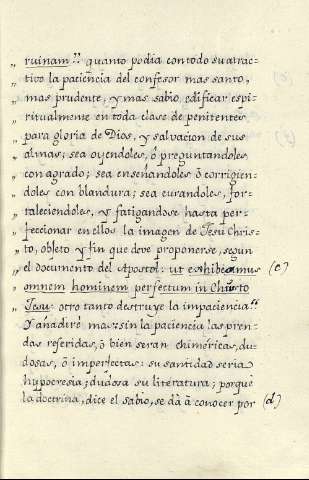 „ ruinam": quanto podia con todo su atrac-
„ tivo la paciencia del confesor mas santo,
„ mas prudente, y mas sabio edificar espi-
„ ritualmente en toda clase de penitentes
„ para gloria de Dios, y salvacion de sus
„ almas; sea oyendoles, ô preguntandoles
„ con agrado; sea enseñandoles ô corrigien-
„ doles con blandura; sea curandoles, for-
„ taleciendoles, y fatigandose hasta per-
„ feccionar en ellos la imagen de Jesu Chris-
„ to, objeto y fin que deve proponerse, segun
„ el documento del Apostol: ut exhibeamus (c)
„ omnem hominem perfectum in Christo
„ Jesu: otro tanto destruye la impaciencia"
Y añadiré mas: sin la paciencia las pren-
das referidas, ô bien seran chiméricas, du-
dosas, ô imperfectas: su santidad seria
hypocresia; dudosa su literatura; porque
la doctrina, dice el sabio, se dà â conocer por (d)